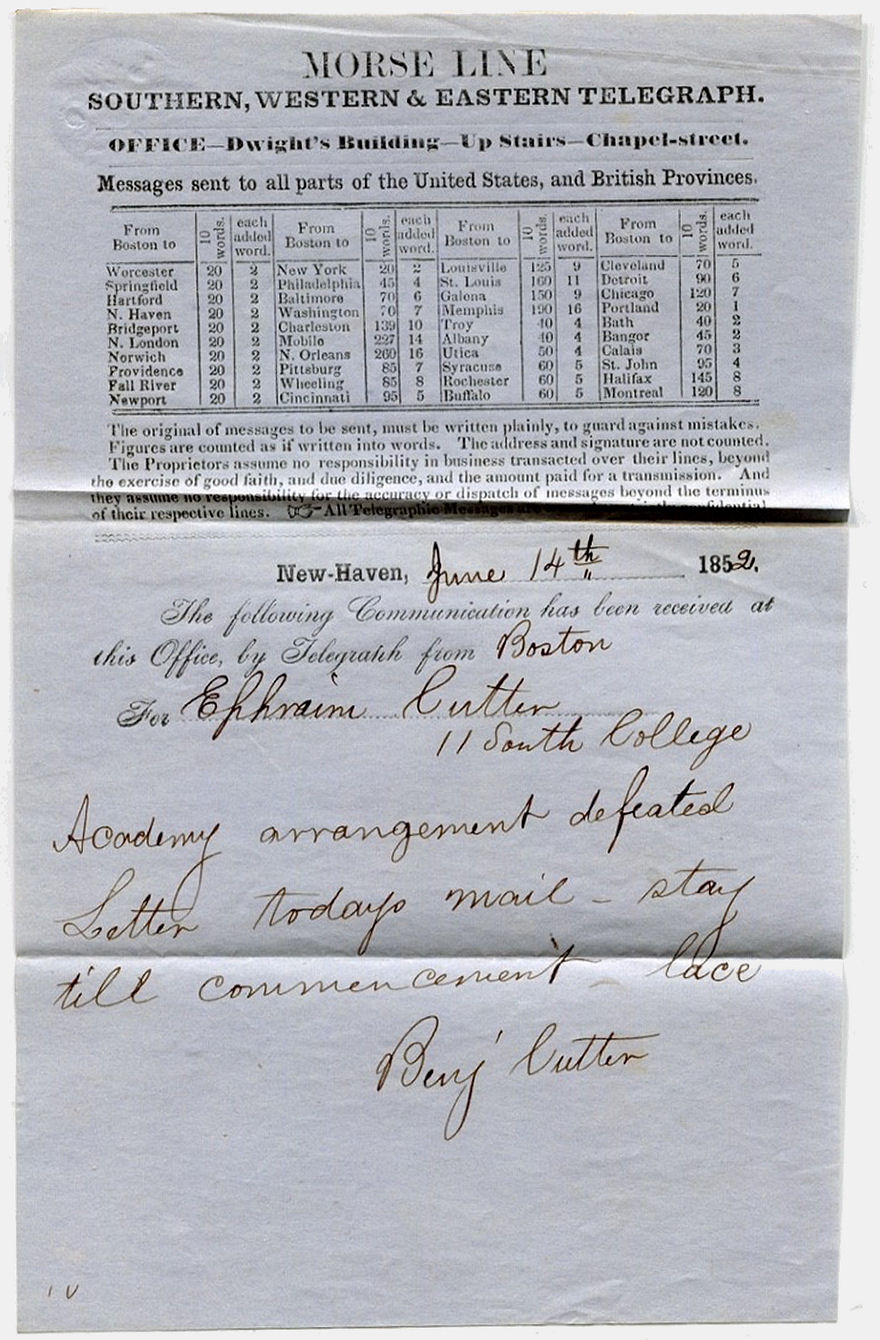 MORSE LINE
SOUTHERN, WESTERN & EASTERN TELEGRAPH.
OFFICE—Dwight's Building—Up Stairs—Chapel-street.
Messages sent to all parts of the United States, and British Provinces.
From Boston to | 10 words. | each added word. | From Boston to | 10 words. | each added word. | From Boston to | 10 words. | each added word. | From Boston to | 10 words. | each added word.
Worcester 20 2 New York 20 2 Louisville 125 9 Cleveland 70 5
Springfield 20 2 Philadelphia 45 4 St. Louis 160 11 Detroit 90 6
Hartford 20 2 Baltimore 70 6 Galena 150 9 Chicago 120 7
N. Haven 20 2 Washington 70 7 Memphis 190 16 Portland 20 1
Bridgeport 20 2 Charleston 139 10 Troy 40 4 Bath 40 2
N. London 20 2 Mobile 227 14 Albany 40 4 Bangor 45 2
Norwich 20 2 N. Orleans 260 16 Utica 50 4 Calais 70 3
Providence 20 2 Pittsburg 85 7 Syracuse 60 5 St. John 95 4
Fall River 20 2 Wheeling 85 8 Rochester 60 5 Halifax 145 8
Newport 20 2 Cincinnati 95 5 Buffalo 60 5 Montreal 120 8
The original of messages to be sent, must be written plainly, to guard against mistakes.
Figures are counted as if written into words. The address and signature are not counted.
The Proprietors assume no responsibility in business transacted over their lines, beyond
the exercise of good faith, and due diligence, and the amount paid for a transmission. And
they assume no responsibility for the accuracy or dispatch of messages beyond the terminus
of their respective lines. ☞ All Telegraphic Messages are
New-Haven, June 14th 1852.
The following Communication has been received at
this Office, by Telegraph from Boston
For Ephraim Cutter
11 South College
Academy arrangement defeated
Letter todays mail – stay
till commencement – lace
Benj' Cutter